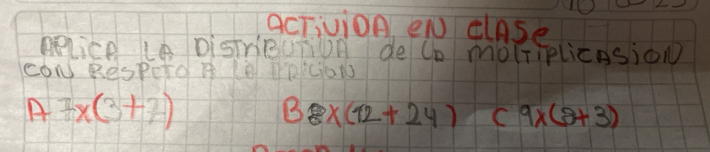 ACTiViDA EN CLASE
APLiCA LA DiSTRiBUTiVA de la molTiplicAsioN
CON RESPETO A LA
A 7x(3+7) B 8x(12+24) C 9x(8+3)